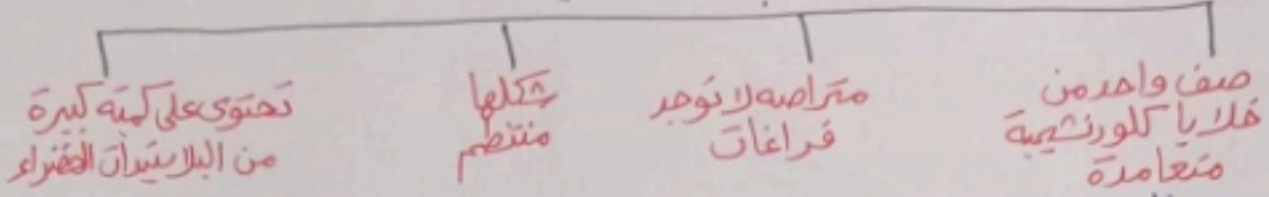 صف واحد من
خلايا كلورنشيمية
متعامدة
متراصه لا توجد
فراغات
شكلها
منتظم
تحتوى على كمية كبيرة
من البلاستيدات الخضراء